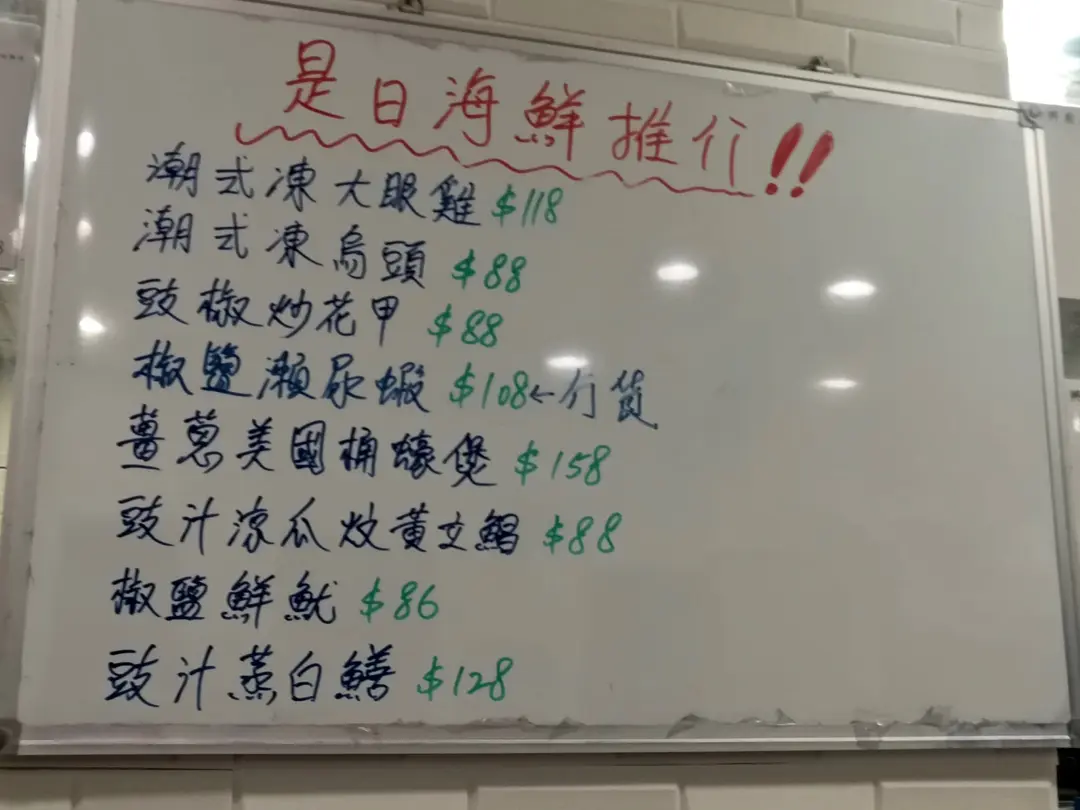 是日海鮮推介!!
潮式凍大眼雞 $118
潮式凍烏頭 $88
豉椒炒花甲 $88
椒鹽瀨尿蝦 $108←行貨
薑葱美國桶蠔煲 $158
豉汁涼瓜炆黃文鱨 $88
椒鹽鮮魷 $86
豉汁蒸白鱔 $128